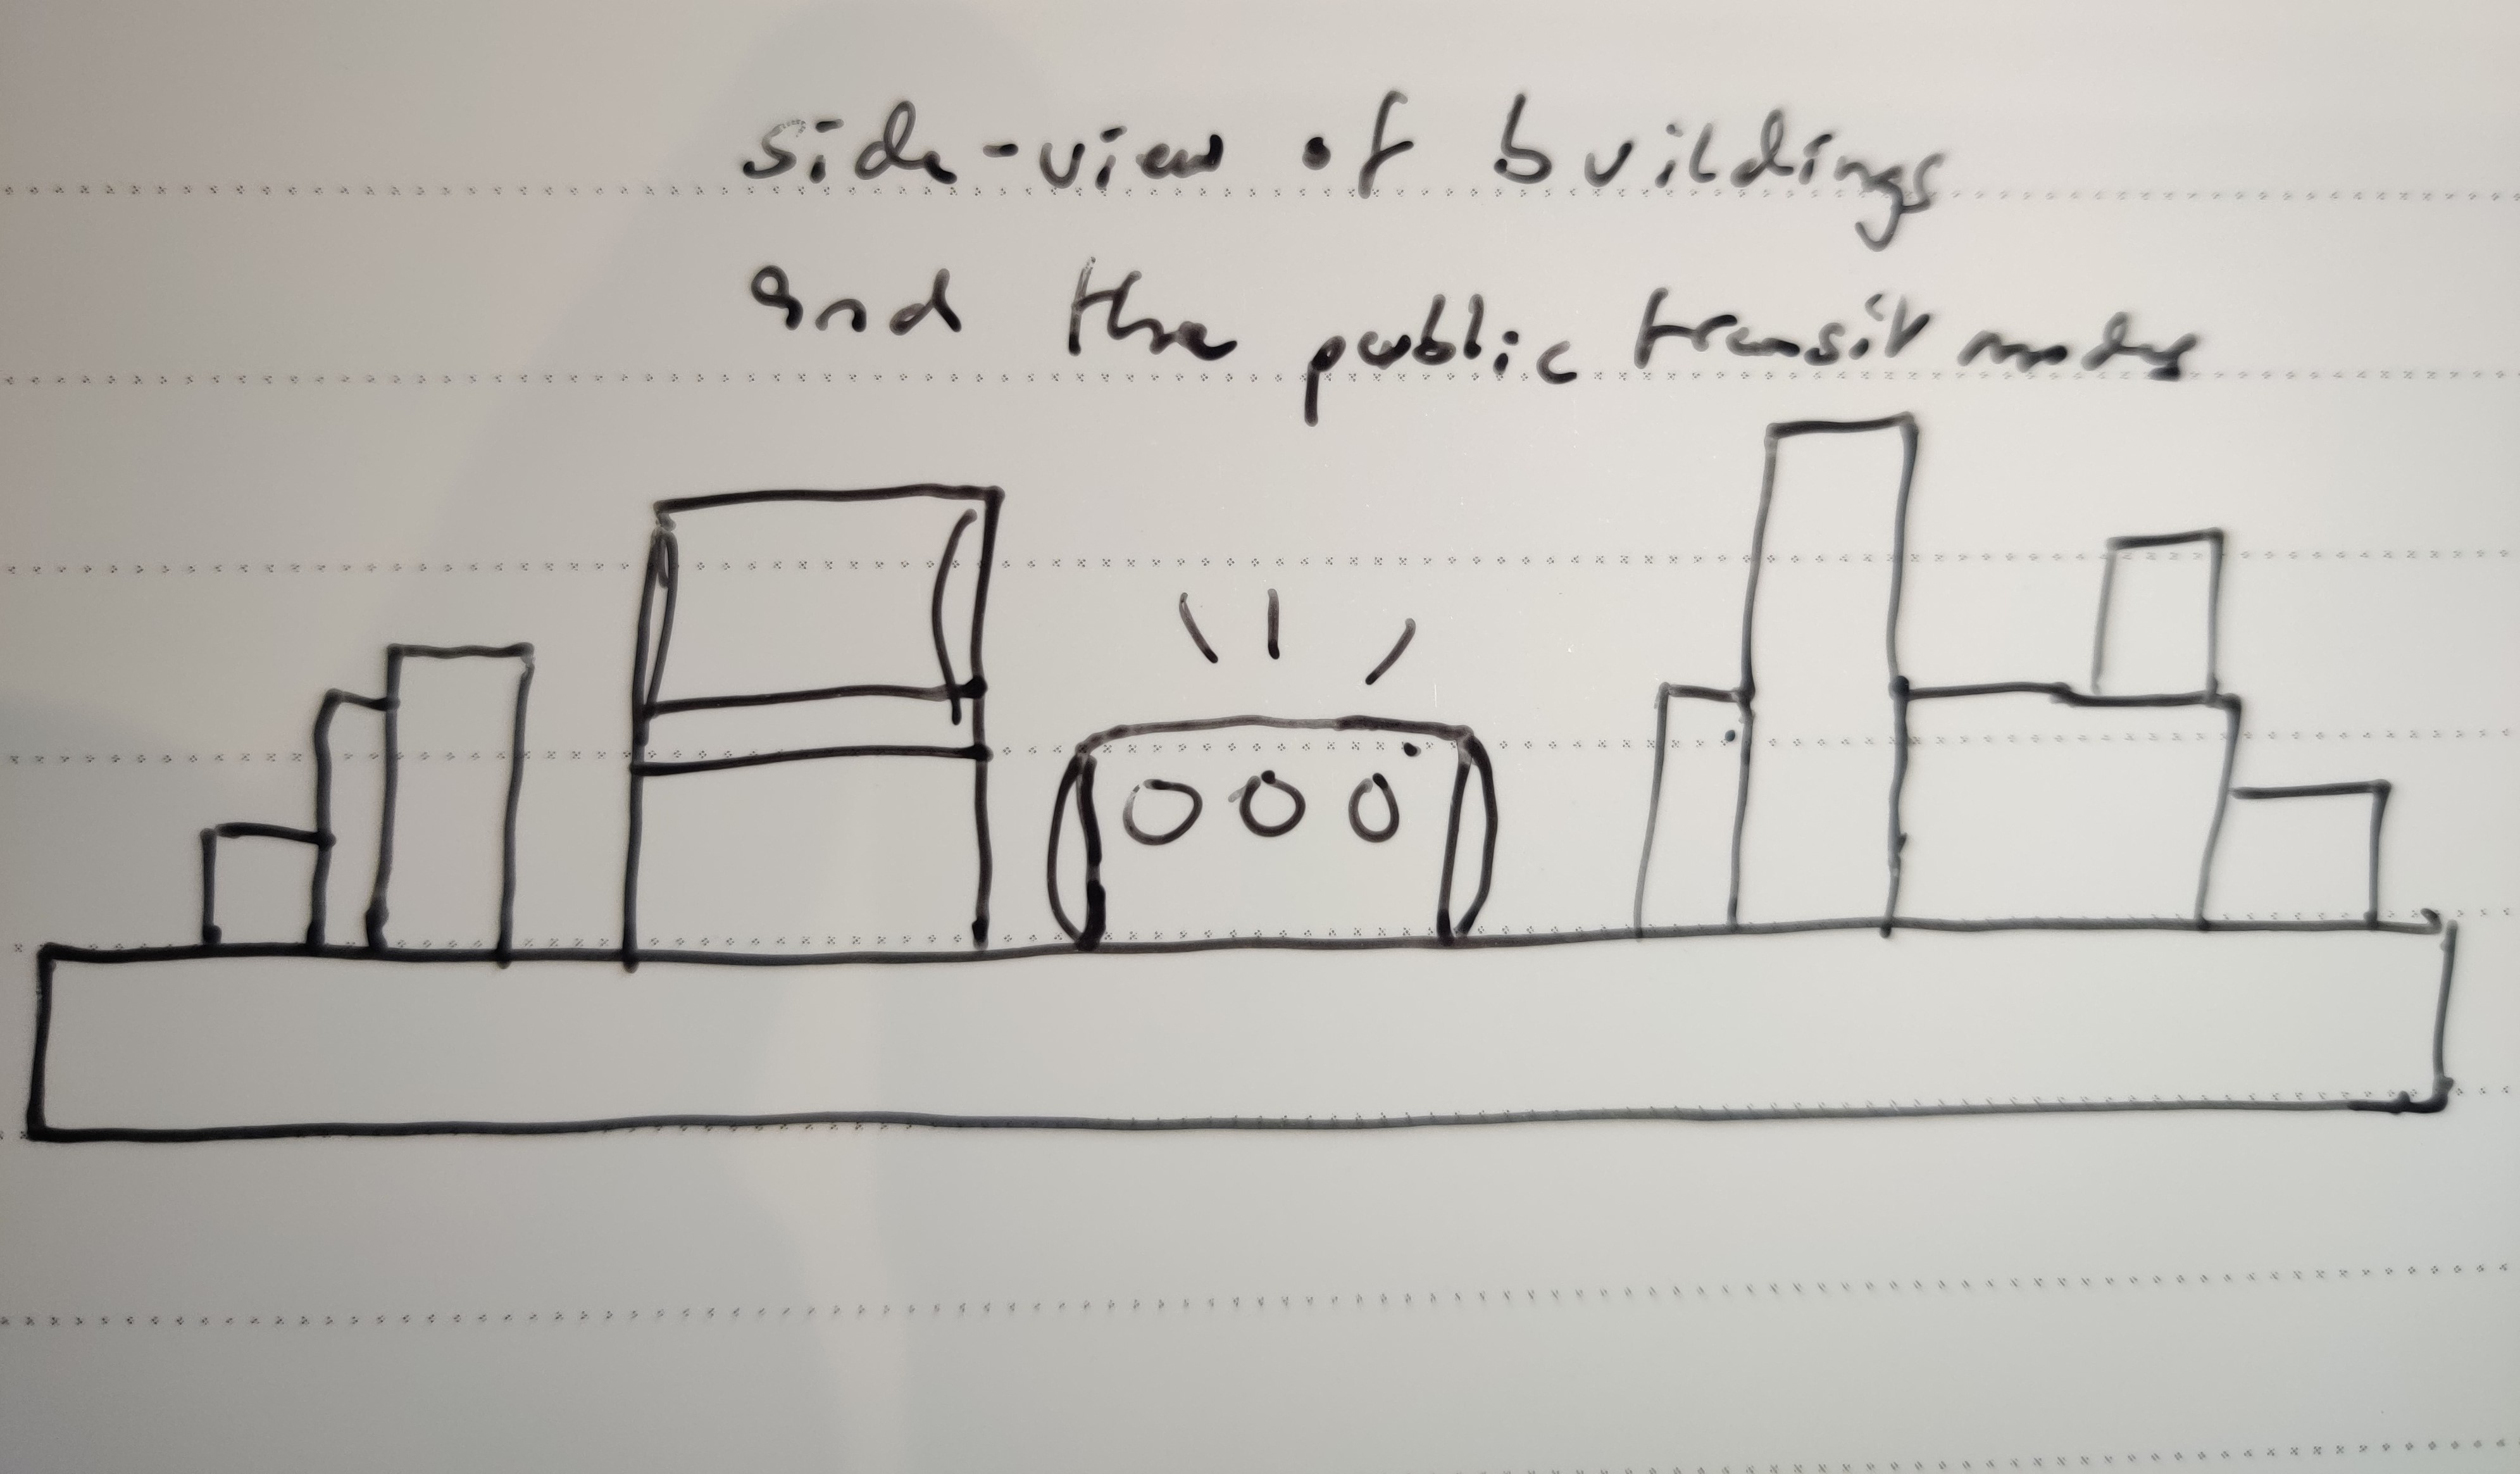 side-view of buildings
and the public transit modes